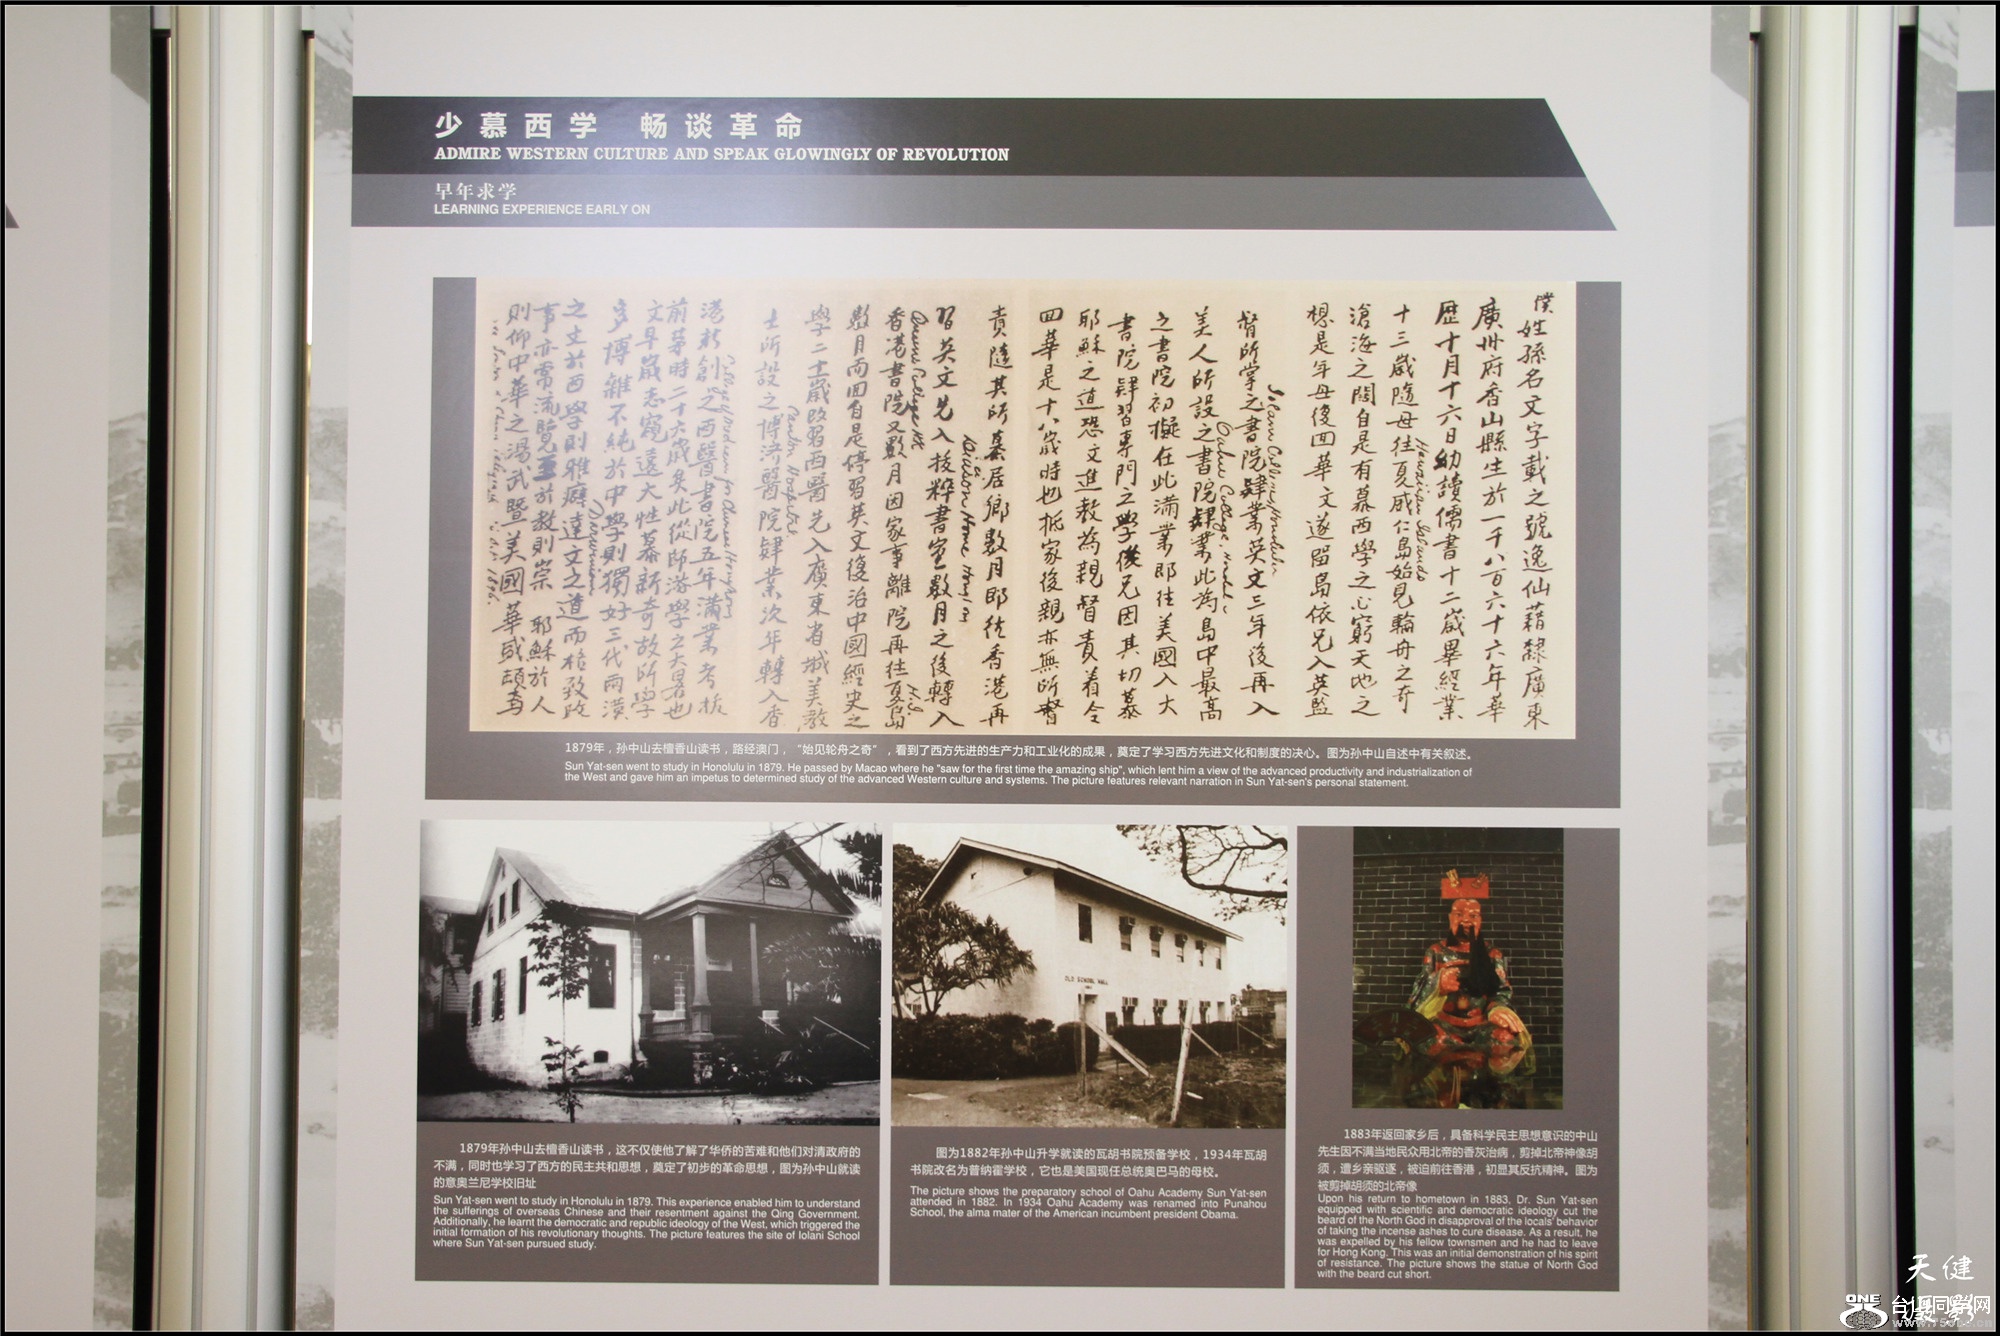 少慕西学 畅谈革命
ADMIRE WESTERN CULTURE AND SPEAK GLOWINGLY OF REVOLUTION
早年求学
LEARNING EXPERIENCE EARLY ON
僕姓孫名文字載之號逸仙藉隸廣東
廣州府香山縣生於一千八百六十六年華
歷十月十六日幼讀儒書十二歲畢經業
十三歲隨母往夏威仁島始見輪舟之奇
Hawaiian Islands
滄海之闊自是有慕西學之心窮天地之
想是年母復回華文遂留島依兄入英監
督所掌之書院肄業英文三年後再入
美人所設之書院肄業此為島中最高
Oahu College, Honolulu
之書院初擬在此滿業即往美國入大
書院肄習專門之學後兄因其切慕
耶穌之道恐文進教為親督責着令
回華是十八歲時也抵家後親亦無所督
責隨其所慕居鄉數月即往香港再
習英文先入拔粹書室數月之後轉入
Queens College
香港書院又數月因家事離院再往夏島
H.I.
數月而回自是停習英文復治中國經史之
學二十一歲改習西醫先入廣東省城美教
士所設之博濟醫院肄業次年轉入香
港新創之西醫書院五年滿業考拔
前茅時二十六歲矣此從師游學之大畧也
文早歲志窺遠大性慕新奇故所學
多博雜不純於中學則獨好三代兩漢
之文於西學則雅癖達文之道而格致政
Darwinism
事亦常流覽至於教則崇耶穌於人
則仰中華之湯武暨美國華盛頓焉
1879年，孙中山去檀香山读书，路经澳门，“始见轮舟之奇”，看到了西方先进的生产力和工业化的成果，奠定了学习西方先进文化和制度的决心。图为孙中山自述中有关叙述。
Sun Yat-sen went to study in Honolulu in 1879. He passed by Macao where he "saw for the first time the amazing ship", which lent him a view of the advanced productivity and industrialization of
the West and gave him an impetus to determined study of the advanced Western culture and systems. The picture features relevant narration in Sun Yat-sen's personal statement.
OLD SCHOOL HALL
1879年孙中山去檀香山读书，这不仅使他了解了华侨的苦难和他们对清政府的
不满，同时也学习了西方的民主共和思想，奠定了初步的革命思想，图为孙中山就读
的意奥兰尼学校旧址
Sun Yat-sen went to study in Honolulu in 1879. This experience enabled him to understand
the sufferings of overseas Chinese and their resentment against the Qing Government.
Additionally, he learnt the democratic and republic ideology of the West, which triggered the
initial formation of his revolutionary thoughts. The picture features the site of Iolani School
where Sun Yat-sen pursued study.
图为1882年孙中山升学就读的瓦胡书院预备学校，1934年瓦胡
书院改名为普纳霍学校，它也是美国现任总统奥巴马的母校。
The picture shows the preparatory school of Oahu Academy Sun Yat-sen
attended in 1882. In 1934 Oahu Academy was renamed into Punahou
School, the alma mater of the American incumbent president Obama.
1883年返回家乡后，具备科学民主思想意识的中山
先生因不满当地民众用北帝的香灰治病，剪掉北帝神像胡
须，遭乡亲驱逐，被迫前往香港，初显其反抗精神。图为
被剪掉胡须的北帝像
Upon his return to hometown in 1883, Dr. Sun Yat-sen
equipped with scientific and democratic ideology cut the
beard of the North God in disapproval of the locals' behavior
of taking the incense ashes to cure disease. As a result, he
was expelled by his fellow townsmen and he had to leave
for Hong Kong. This was an initial demonstration of his spirit
of resistance. The picture shows the statue of North God
with the beard cut short.
天健
摄影
ONE
台山同学网